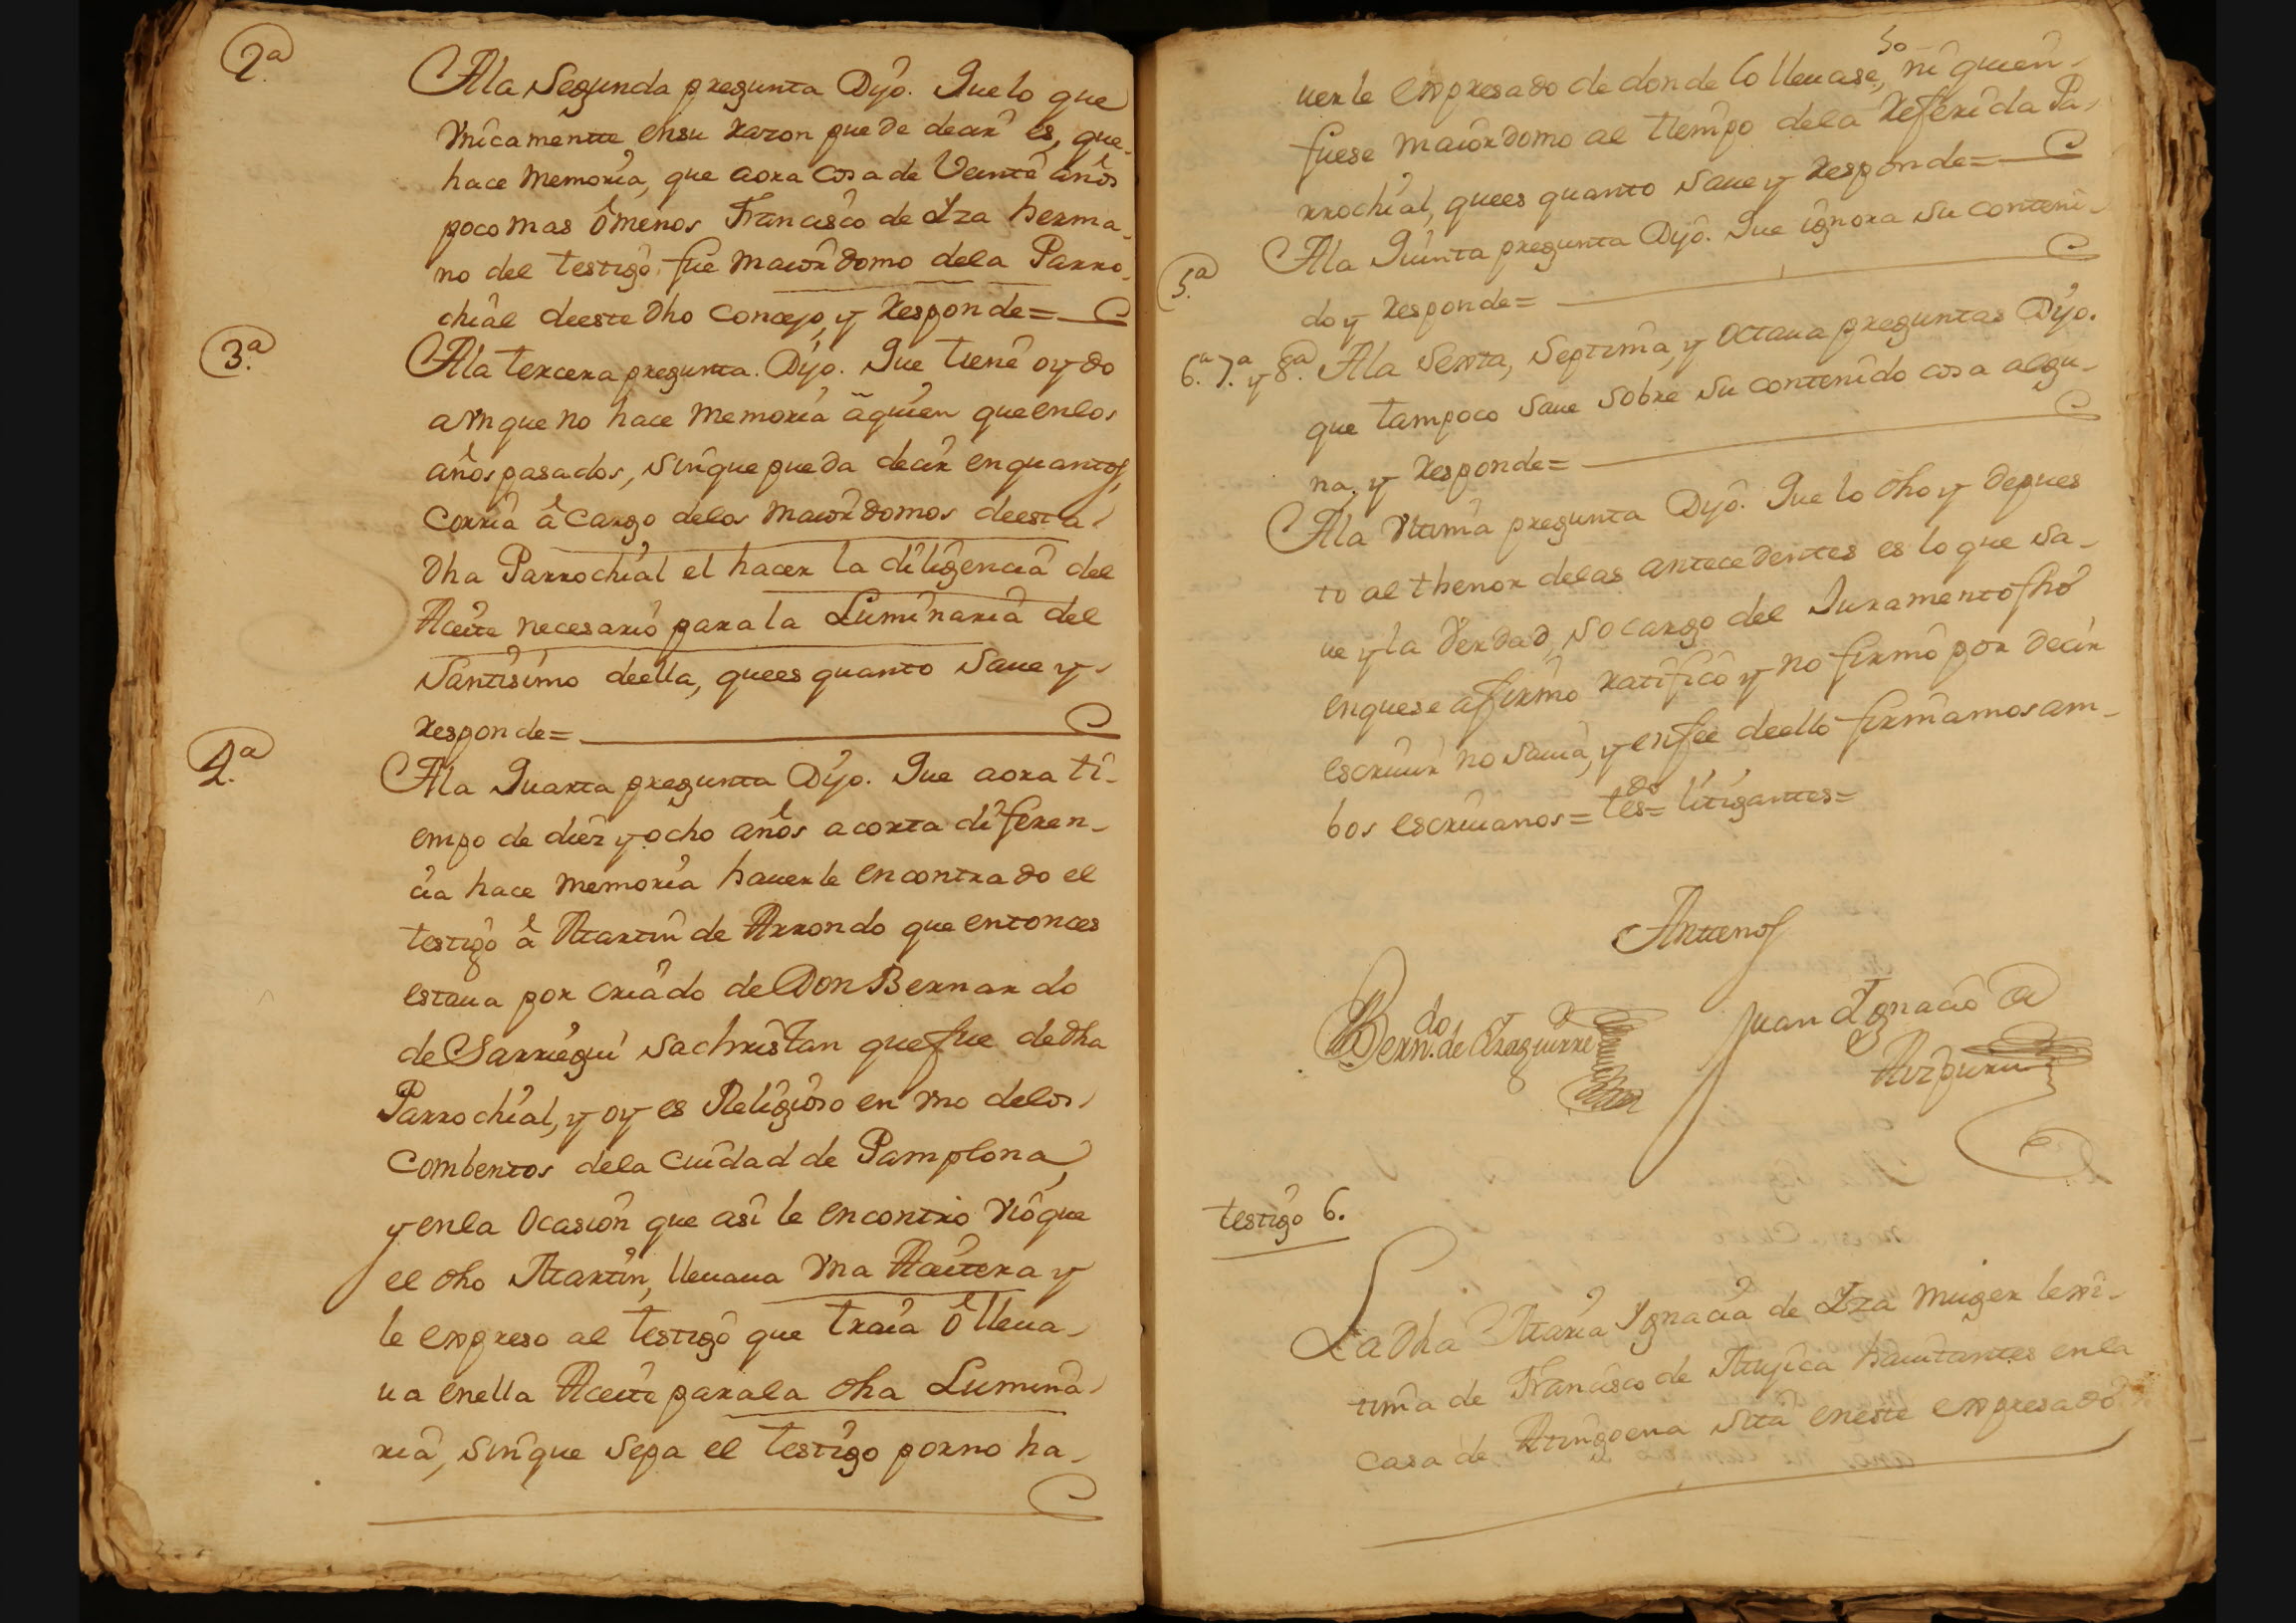 2.ª
A la Segunda pregunta Dijo. Que lo que
Unicamente en su razon puede decir es, que
hace memoria, que aora cosa de Veinte años
poco mas ô menos Francisco de Iza herma-
no del testigo, fue maiordomo de la Parro-
chial de este dho Concejo, y Responde=
3.ª
A la tercera pregunta. Dijo. Que tiene oydo
aunque no hace memoria â quien que en los
años pasados, sin que pueda decir en quantos,
Corria â cargo de los maiordomos de esta
dha Parrochial el hacer la diligencia del
Aceite necesario para la Luminaria del
Santisimo de ella, que es quanto save y
Responde=
4.ª
A la Quarta pregunta Dijo. Que aora ti-
empo de diez y ocho años a corta diferen-
cia hace memoria haverle encontrado el
testigo â Martin de Arrondo que entonces
estava por criado de Don Bernardo
de Sarriegui sachristan que fue de dha
Parrochial, y oy es Religioso en uno de los
Combentos de la Ciudad de Pamplona,
y en la Ocasion que asi le encontro vió que
el dho Martin, llevava una Aceitera y
le expreso al testigo que traia ô lleva-
va en ella Aceite para la dha Lumina-
ria, sin que sepa el testigo por no ha-
50
verle expresado de donde lo llevase, ni quien
fuese maiordomo al tiempo de la Referida Pa-
rrochial, que es quanto save y Responde=
5.ª
A la Quinta pregunta Dijo. Que ignora su conteni-
do y Responde=
6.ª 7.ª y 8.ª A la Sexta, Septima, y Octava preguntas Dijo.
que tampoco save sobre su contenido cosa algu-
na, y Responde=
A la Ultima pregunta Dijo. Que lo dho y depues
to al thenor de las antecedentes es lo que sa-
ve y la Verdad, so cargo del Juramento fho
en que se afirmo ratificó y no firmó por decir
escrivir no savia, y en fee de ello firmamos am-
bos escrivanos= tes=do litigantes=
Ante nos
Bern.do de Yraguirre
Juan Ignacio de
Aizpuru
testigo 6.
La dha Maria Ignacia de Iza muger lexi-
tima de Francisco de Mujica havitantes en la
casa de Mingoena sita en este expresado